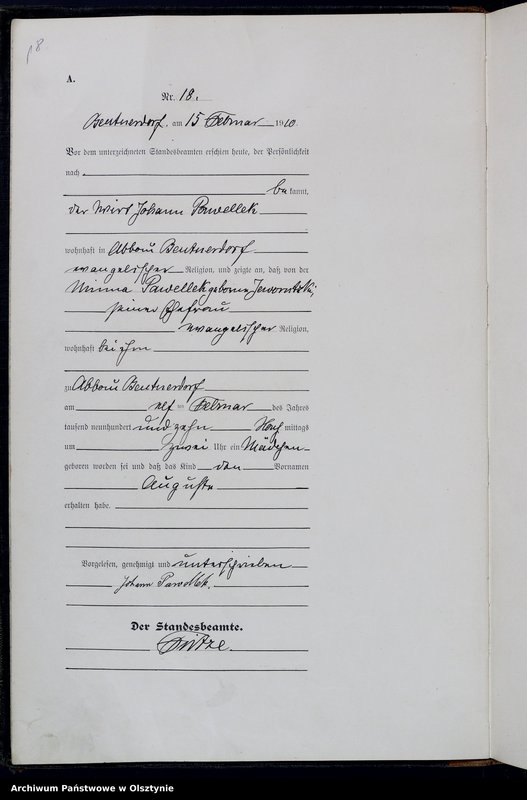 p8
A.
Nr. 18.
Beutnerdorf, am 15 Februar 1910.
Vor dem unterzeichneten Standesbeamten erschien heute, der Persönlichkeit
nach
bekannt,
der Wirt Johann Pawellek
wohnhaft in Abbau Beutnerdorf
evangelischer Religion, und zeigte an, daß von der
Minna Pawellek geborne
seiner Ehefrau
evangelischer Religion,
wohnhaft bei ihm
zu Abbau Beutnerdorf
am elf ten Februar des Jahres
tausend neunhundert und zehn Nach mittags
um zwei Uhr ein Mädchen
geboren worden sei und daß das Kind den Vornamen
Auguste
erhalten habe.
Vorgelesen, genehmigt und unterschrieben
Johann Pawellek.
Der Standesbeamte.
Archiwum Państwowe w Olsztynie